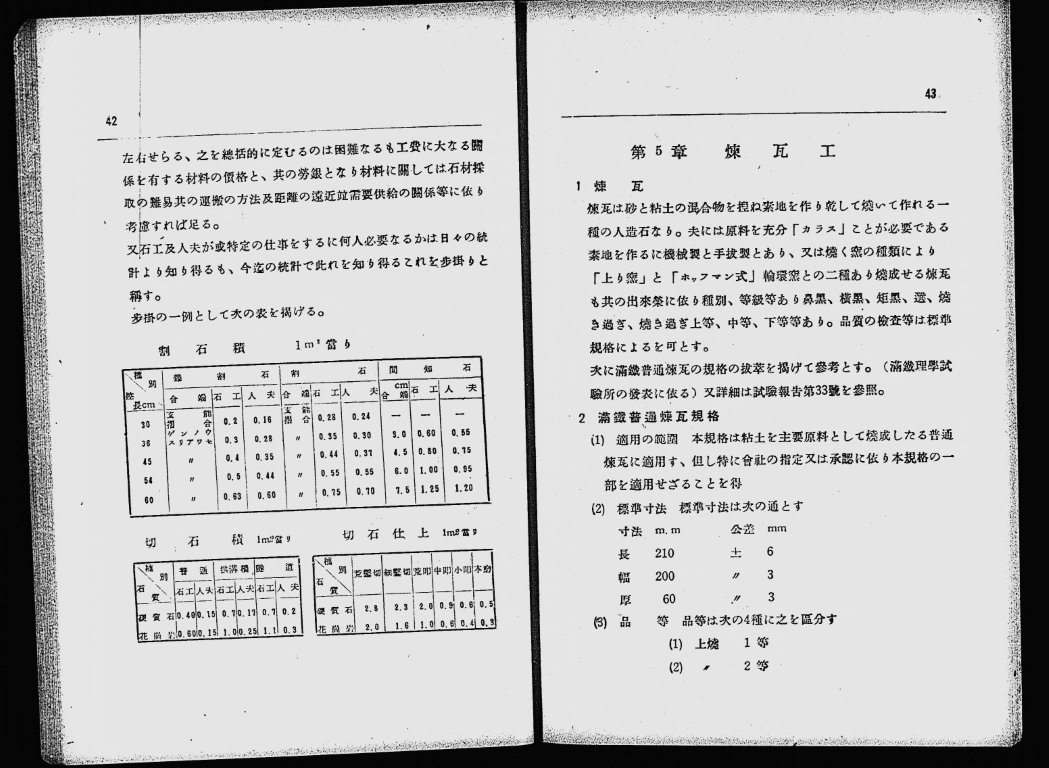 42
左右せらる、之を總括的に定むるのは困難なるも工費に大なる關
係を有する材料の價格と、其の勞銀となり材料に關しては石材採
取の難易其の運搬の方法及距離の遠近竝需要供給の關係等に依り
考慮すれば足る。
又石工及人夫が或特定の仕事をするに何人必要なるかは日々の統
計より知り得るも、今迄の統計で此れを知り得るこれを步掛りと
稱す。
步掛の一例として次の表を揭げる。
割石積 1m²當り
種別 雜割石 割石 間知石
控長cm 合端 石工 人夫 合端 石工 人夫 cm合端 石工 人夫
30 支能摺合 0.2 0.16 支能摺合 0.28 0.24 — — —
36 ゲンノウスリアワセ 0.3 0.28 〃 0.35 0.30 3.0 0.60 0.55
45 〃 0.4 0.35 〃 0.44 0.37 4.5 0.80 0.75
54 〃 0.5 0.44 〃 0.55 0.55 6.0 1.00 0.95
60 〃 0.63 0.60 〃 0.75 0.70 7.5 1.25 1.20
切石積 1m²當り
種別 普通 隧道
石質 石工 人夫 石工 人夫 石工 人夫
硬質石 0.40 0.15 0.7 0.17 0.7 0.2
花崗岩 0.60 0.15 1.0 0.25 1.1 0.3
切石仕上 1m²當り
種別 荒堅切 細堅切 荒叩 中叩 小叩 本磨
石質
硬質石 2.8 2.3 2.0 0.9 0.6 0.5
花崗岩 2.0 1.6 1.0 0.6 0.4 0.3
43
第5章 煉瓦工
1 煉瓦
煉瓦は砂と粘土の混合物を捏ね素地を作り乾して燒いて作れる一
種の人造石なり。夫には原料を充分「カラス」ことが必要である
素地を作るに機械製と手拔製とあり、又は燒く窯の種類により
「上り窯」と「ホッフマン式」輪環窯との二種あり燒成せる煉瓦
も共の出來榮に依り種別、等級等あり鼻黑、橫黑、矩黑、選、燒
き過ぎ、燒き過ぎ上等、中等、下等等あり。品質の檢査等は標準
規格によるを可とす。
次に滿鐵普通煉瓦の規格の拔萃を揭げて參考とす。(滿鐵理學試
驗所の發表に依る)又詳細は試驗報告第33號を參照。
2 滿鐵普通煉瓦規格
(1) 適用の範圍 本規格は粘土を主要原料として燒成したる普通
煉瓦に適用す、但し特に會社の指定又は承認に依り本規格の一
部を適用せざることを得
(2) 標準寸法 標準寸法は次の通とす
寸法 m.m 公差 mm
長 210 土 6
幅 200 〃 3
厚 60 〃 3
(3) 品等 品等は次の4種に之を區分す
(1) 上燒 1等
(2) 〃 2等